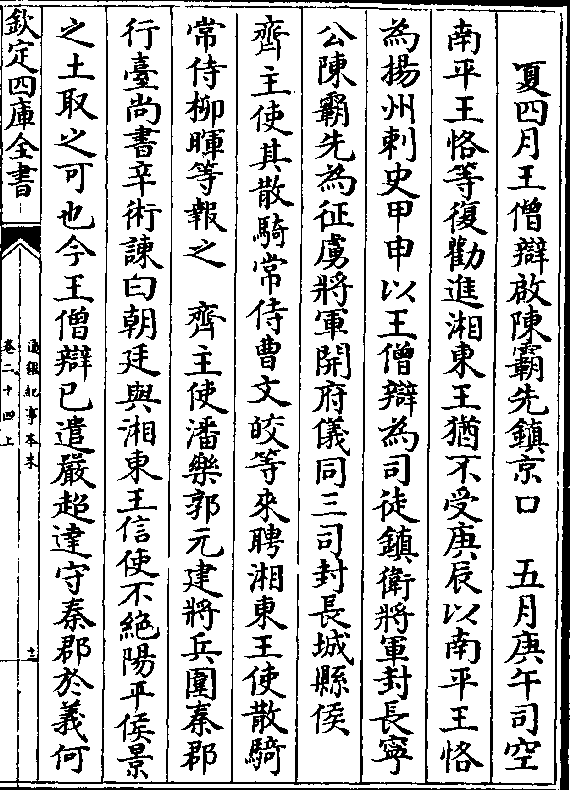 夏四月王僧辯啟陳霸先鎮京口　五月庚午司空
南平王恪等復勸進湘東王猶不受庚辰以南平王恪
為揚州刺史甲申以王僧辯為司徒鎮衛將軍封長寧
公陳霸先為征虜將軍開府儀同三司封長城縣侯
齊主使其散騎常侍曹文皎等來聘湘東王使散騎
常侍柳暉等報之　齊主使潘樂郭元建將兵圍秦郡
行臺尚書辛術諫曰朝廷與湘東王信使不絕陽平侯景
之土取之可也今王僧辯已遣嚴超達守秦郡於義何
欽定四庫全書
通鑑紀事本末
卷二十四上
十二